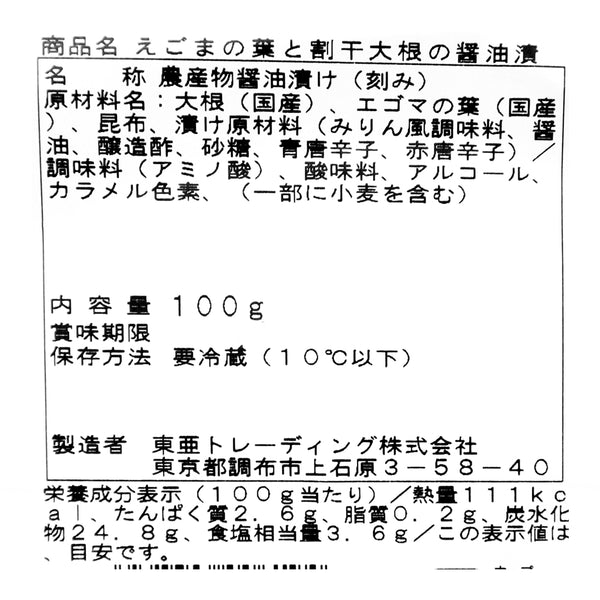 商品名 えごまの葉と割干大根の醤油漬
名　　称 農産物醤油漬け（刻み）
原材料名：大根（国産）、エゴマの葉（国産
）、昆布、漬け原材料（みりん風調味料、醤
油、醸造酢、砂糖、青唐辛子、赤唐辛子）／
調味料（アミノ酸）、酸味料、アルコール、
カラメル色素、（一部に小麦を含む）
内 容 量　１００ｇ
賞味期限
保存方法　要冷蔵（１０℃以下）
製造者　東亜トレーディング株式会社
東京都調布市上石原３－５８－４０
栄養成分表示（１００ｇ当たり）／熱量１１１ｋｃ
ａｌ、たんぱく質２．６ｇ、脂質０．２ｇ、炭水化
物２４．８ｇ、食塩相当量３．６ｇ／この表示値は
、目安です。